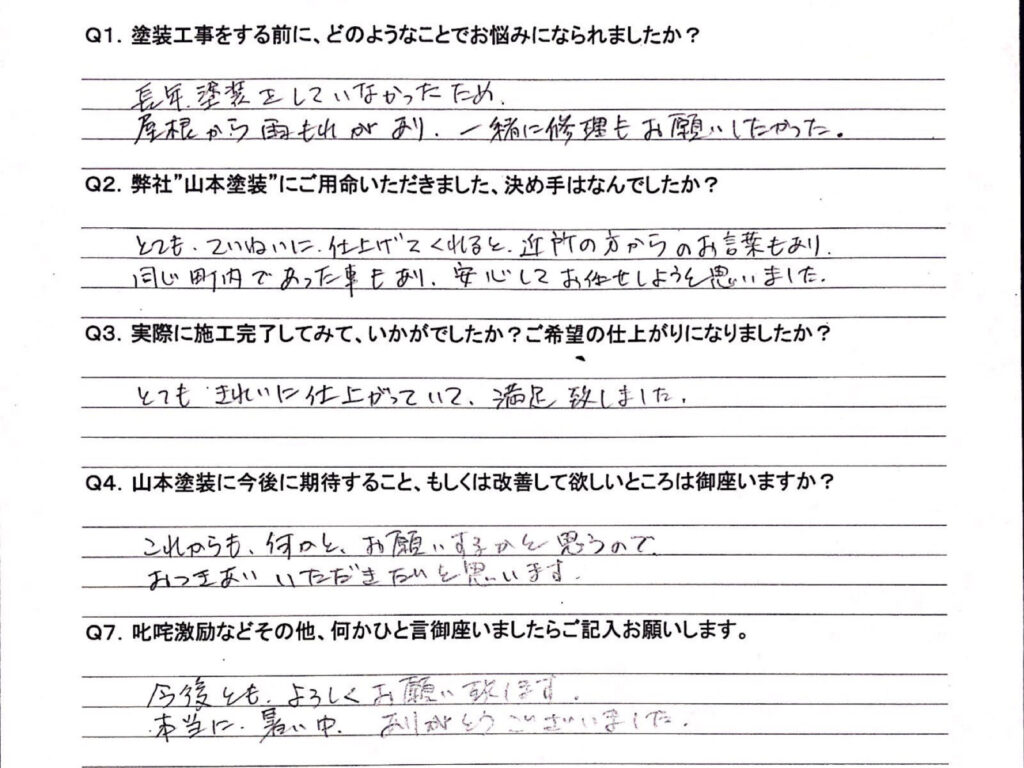 Q1. 塗装工事をする前に、どのようなことでお悩みになられましたか？
長年、塗装をしていなかったため、
屋根から雨もれがあり、一緒に修理もお願いしたかった。
Q2. 弊社”山本塗装”にご用命いただきました、決め手はなんでしたか？
とても、ていねいに、仕上げてくれると、近所の方からのお言葉もあり、
同じ町内であった事もあり、安心してお任せしようと思いました。
Q3. 実際に施工完了してみて、いかがでしたか？ご希望の仕上がりになりましたか？
とても きれいに仕上がっていて、満足致しました。
Q4. 山本塗装に今後に期待すること、もしくは改善して欲しいところは御座いますか？
これからも、何かと、お願いするかと思うので、
おつきあい いただきたいと思います。
Q7. 叱咤激励などその他、何かひと言御座いましたらご記入お願いします。
今後とも、よろしくお願い致します。
本当に、暑い中、ありがとうございました。